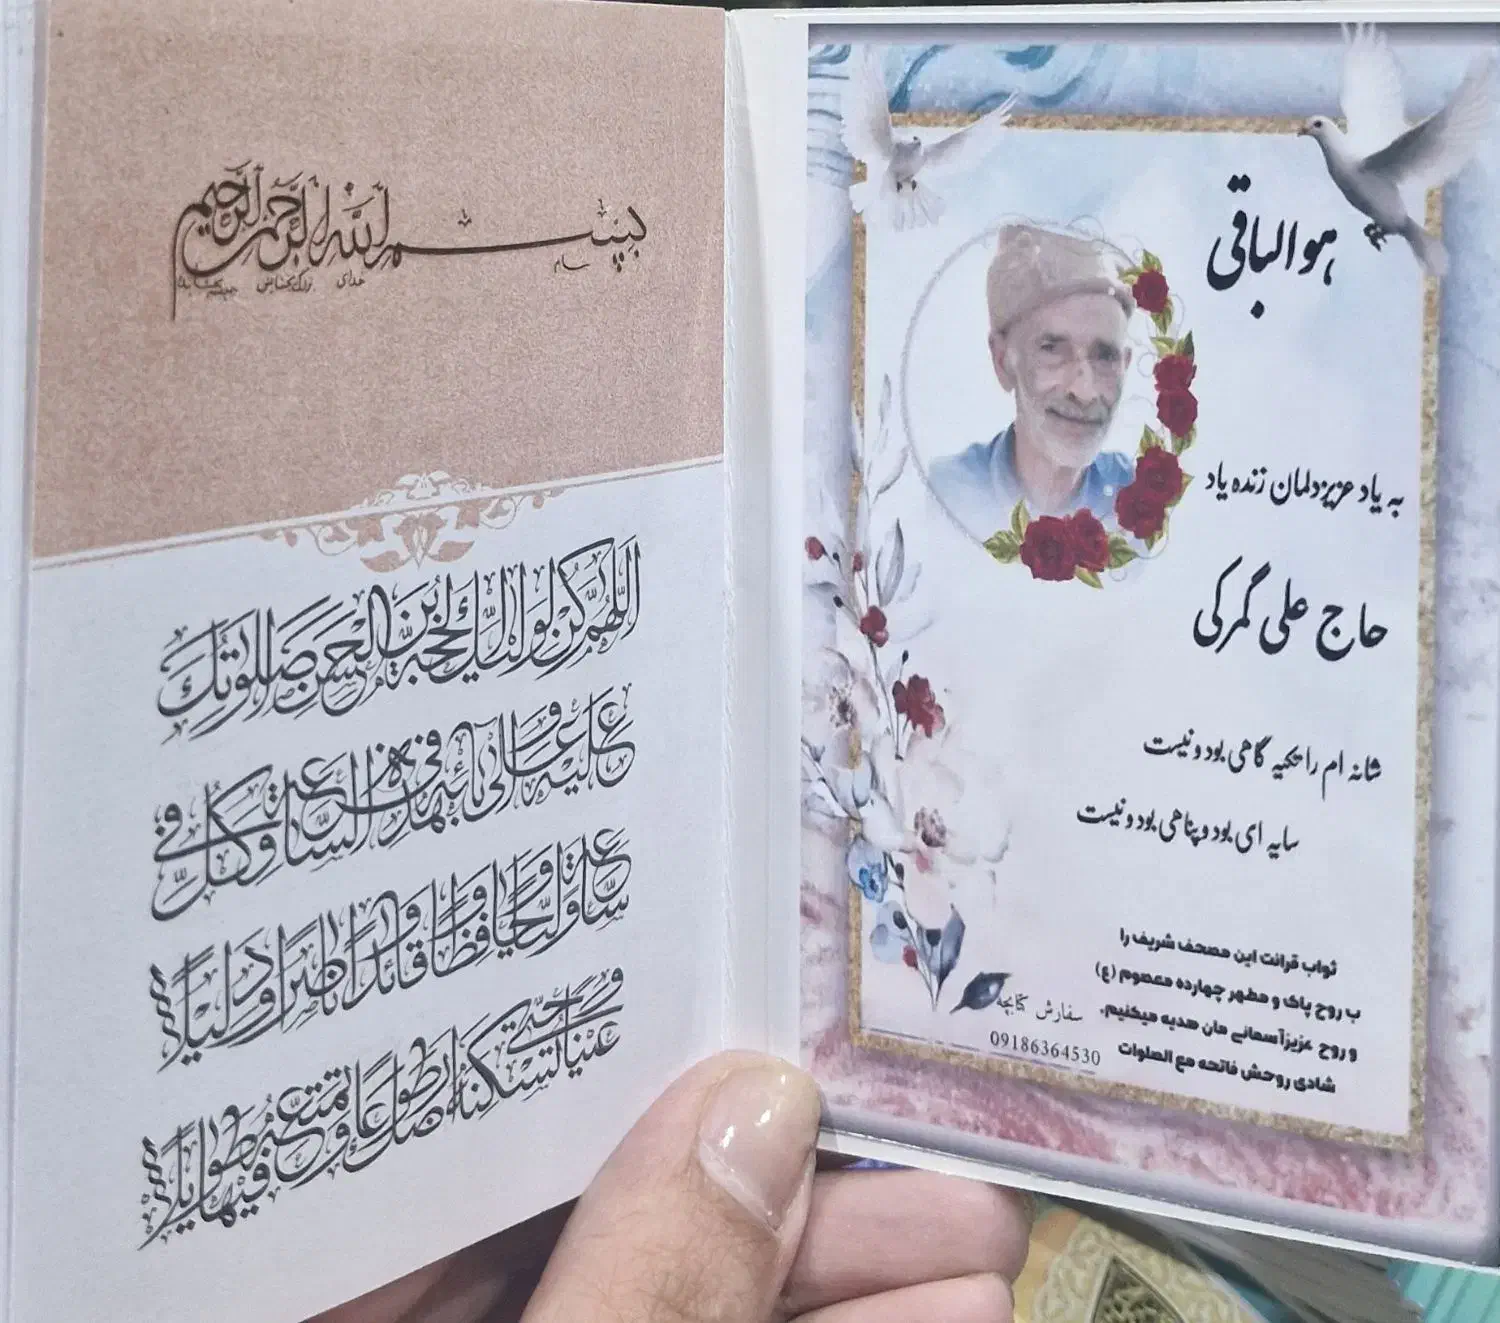 بِسْمِ اللَّهِ الرَّحْمَنِ الرَّحِيمِ
اللَّهُمَّ كُنْ لِوَلِيِّكَ الْحُجَّةِ بْنِ الْحَسَنِ صَلَوَاتُكَ
عَلَيْهِ وَعَلَى آبَائِهِ فِي هَذِهِ السَّاعَةِ وَفِي كُلِّ
سَاعَةٍ وَلِيّاً وَحَافِظاً وَقَائِداً وَنَاصِراً وَدَلِيلاً
وَعَيْناً حَتَّى تُسْكِنَهُ أَرْضَكَ طَوْعاً وَتُمَتِّعَهُ فِيهَا طَوِيلاً
هوالباقی
به یاد عزیزدلمان زنده یاد
حاج علی گمرکی
شانه ام را تکیه گاهی بود و نیست
سایه ای بود و پناهی بود و نیست
ثواب قرائت این مصحف شریف را
ب روح پاک و مطهر چهارده معصوم (ع)
و روح عزیزآسمانی مان هدیه میکنیم.
شادی روحش فاتحه مع الصلوات
سفارش کتابچه
09186364530